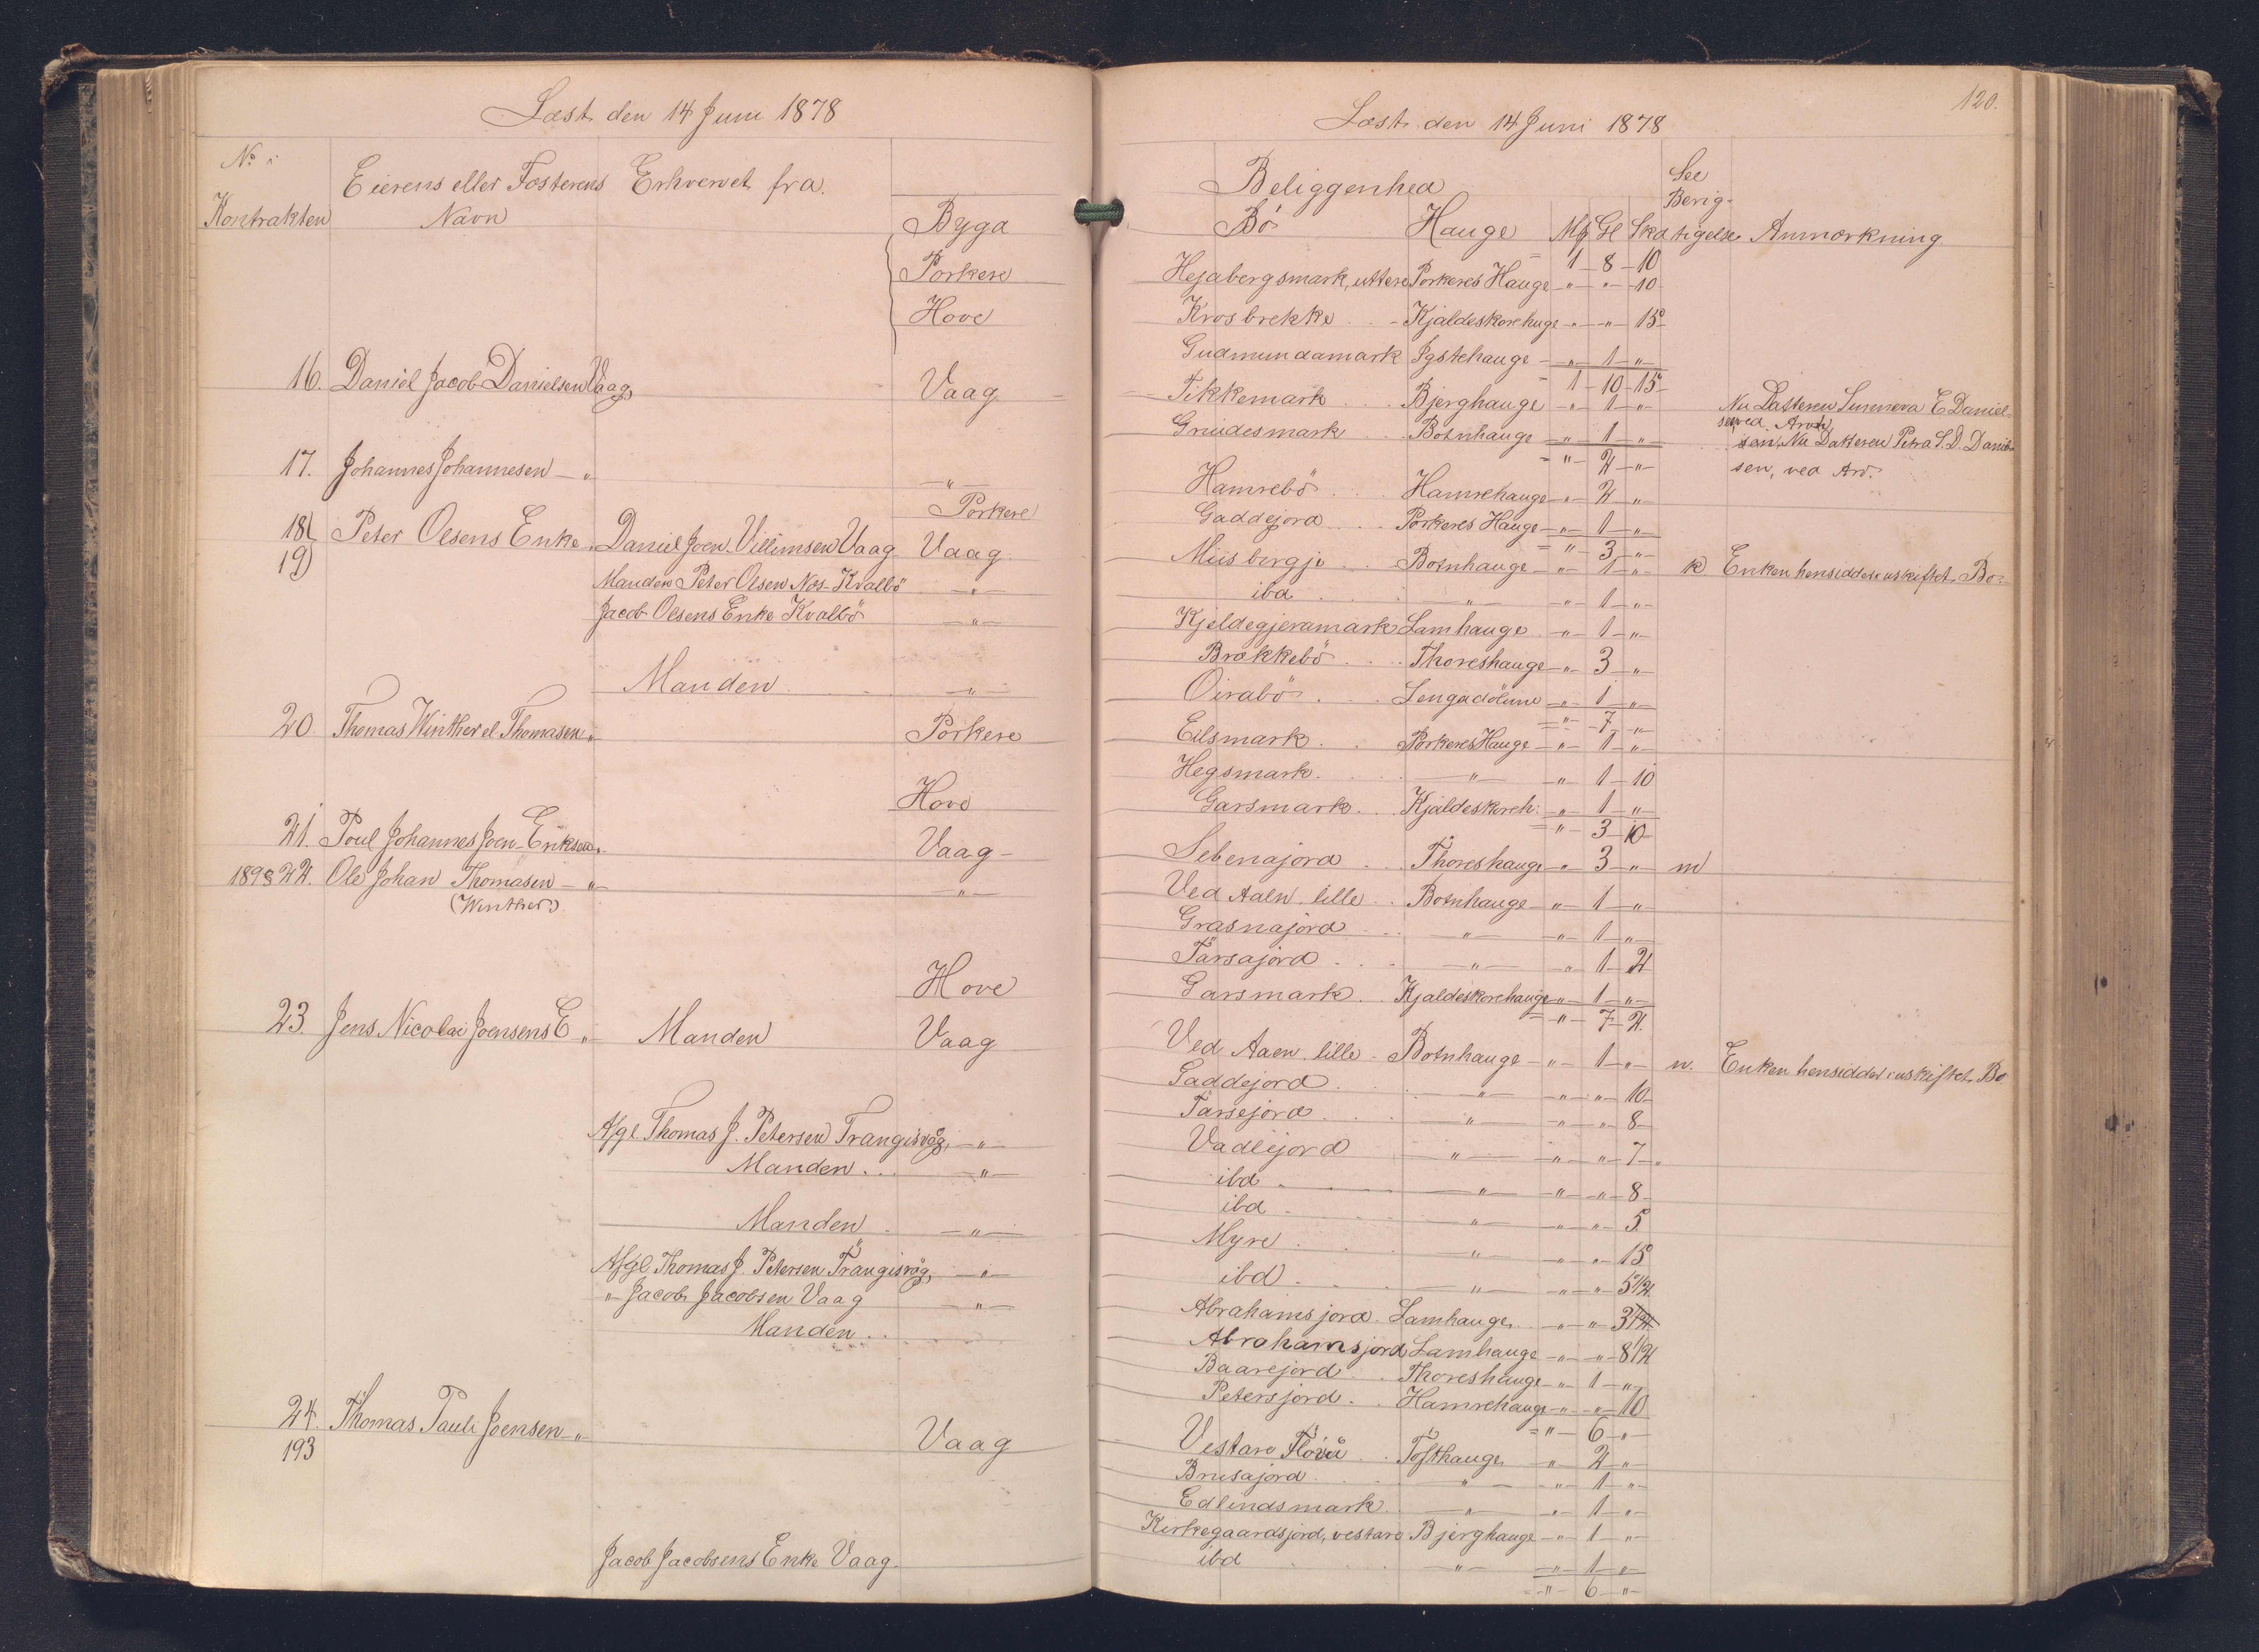 Læst den 14 Juni 1878
No i Kontrakten
Eierens eller Fæsterens Navn
Erhvervet fra.
Bygd
Porkere
Hove
16. Daniel Jacob Danielsen Vaag, Vaag
17. Johannes Johannesen — " — " —
Porkere
18 Peter Olsens Enke " Daniel Joen Villimsen Vaag Vaag
19) Manden Peter Olsen Næs Kvalbö — " —
Jacob Olsens Enke Kvalbö — " —
Manden — " —
20. Thomas Winther el Thomasen " Porkere
Hove
21. Poul Johannes Joen-Eriksen " Vaag —
22. Ole Johan Thomasen — " — " —
(Winther)
Hove
23. Jens Nicolai Joensens E " Manden Vaag
Afgl. Thomas J. Petersen Trangisvåg, — " —
Manden . . . — " —
Manden . — " —
Afgl Thomas J. Petersen Trangisvåg, — " —
" Jacob Jacobsen Vaag — " —
Manden . .
24. Thomas Pauli Joensen — " Vaag
193
Jacob Jacobsens Enke Vaag.
120.
Læst den 14 Juni 1878
Beliggenhed
Bö Hauge Mk Gl Ska See Berigtigelse Anmærkning
1 — 8 — 10
Hejabergsmark, uttere Porkeres Hauge — " — " — 10
Krosbrekke . . — Kjaldeskorehuge — " — " — 15
Gudmundamark Ygstehauge — " — 1 — "
1 — 10 — 15
Tikkemark . . Bjerghauge — " — 1 — " Nu Datteren Sunneva E Daniel-
sen ved Arv
Grundesmark . . Botnhauge — " — 1 — " Nu Datteren Petra S. D. Daniel-
= " — 2 — " sen, ved Arv.
Hamrebö . . Hamrehauge — " — 2 — "
Gaddejord . . Porkeres Hauge — " — 1 — "
= " — 3 — "
Miisbergji . . Botnhauge — " — 1 — " k Enken hensidder i uskiftet Bo.
ibd . . " — " — 1 — "
Kjeldegjeramark Lamhauge — " — 1 — "
Brækkebö . . Thoreshauge — " — 3 — "
Oirabö . . Lengadölune — " — 1 — "
= " — 7 — "
Eilsmark . . Porkeres Hauge — " — 1 — "
Hegsmark . . — " — " — 1 — 10
Garsmark . . Kjaldeskoreh: — " — 1 — "
= " — 3 — 10
Sebenajord . . Thoreshauge — " — 3 — " m
Ved Aaen lille . . Botnhauge — " — 1 — "
Grasnajord . . — " — " — 1 — "
Tärsajord . . — " — " — 1 — 2
Garsmark . . Kjaldeskorehauge — " — 1 — "
= " — 7 — 2
Ved Aaen lille — Botnhauge — " — 1 — " n. Enken hensidder i uskiftet Bo
Gaddejord . . — " — " — " — 10
Tärsejord . . — " — " — " — 8
Vadlejord — " — " — " — 7
ibd . — " — " — " — 8
ibd . — " — " — " — 5
Myre . — " — " — " — 15
ibd . . — " — " — " — 5 1/2
Abrahamsjord . Lamhauge . — " — " — 3 1/2
Abrahamsjord Lamhauge — " — " — 8 1/2
Baarejord . . Thoreshauge — " — 1 — "
Petersjord . . Hamrehauge — " — " — 10
= " — 6 — "
Vestare Flövü . . Tofthauge — " — 2 — "
Brusajord . . — " — " — 1 — "
Edlindsmark — " — " — 1 — "
Kirkegaardsjord, vestare Bjerghauge — " — 1 — "
ibd . . — " — " — 1 — "
= " — 6 — "